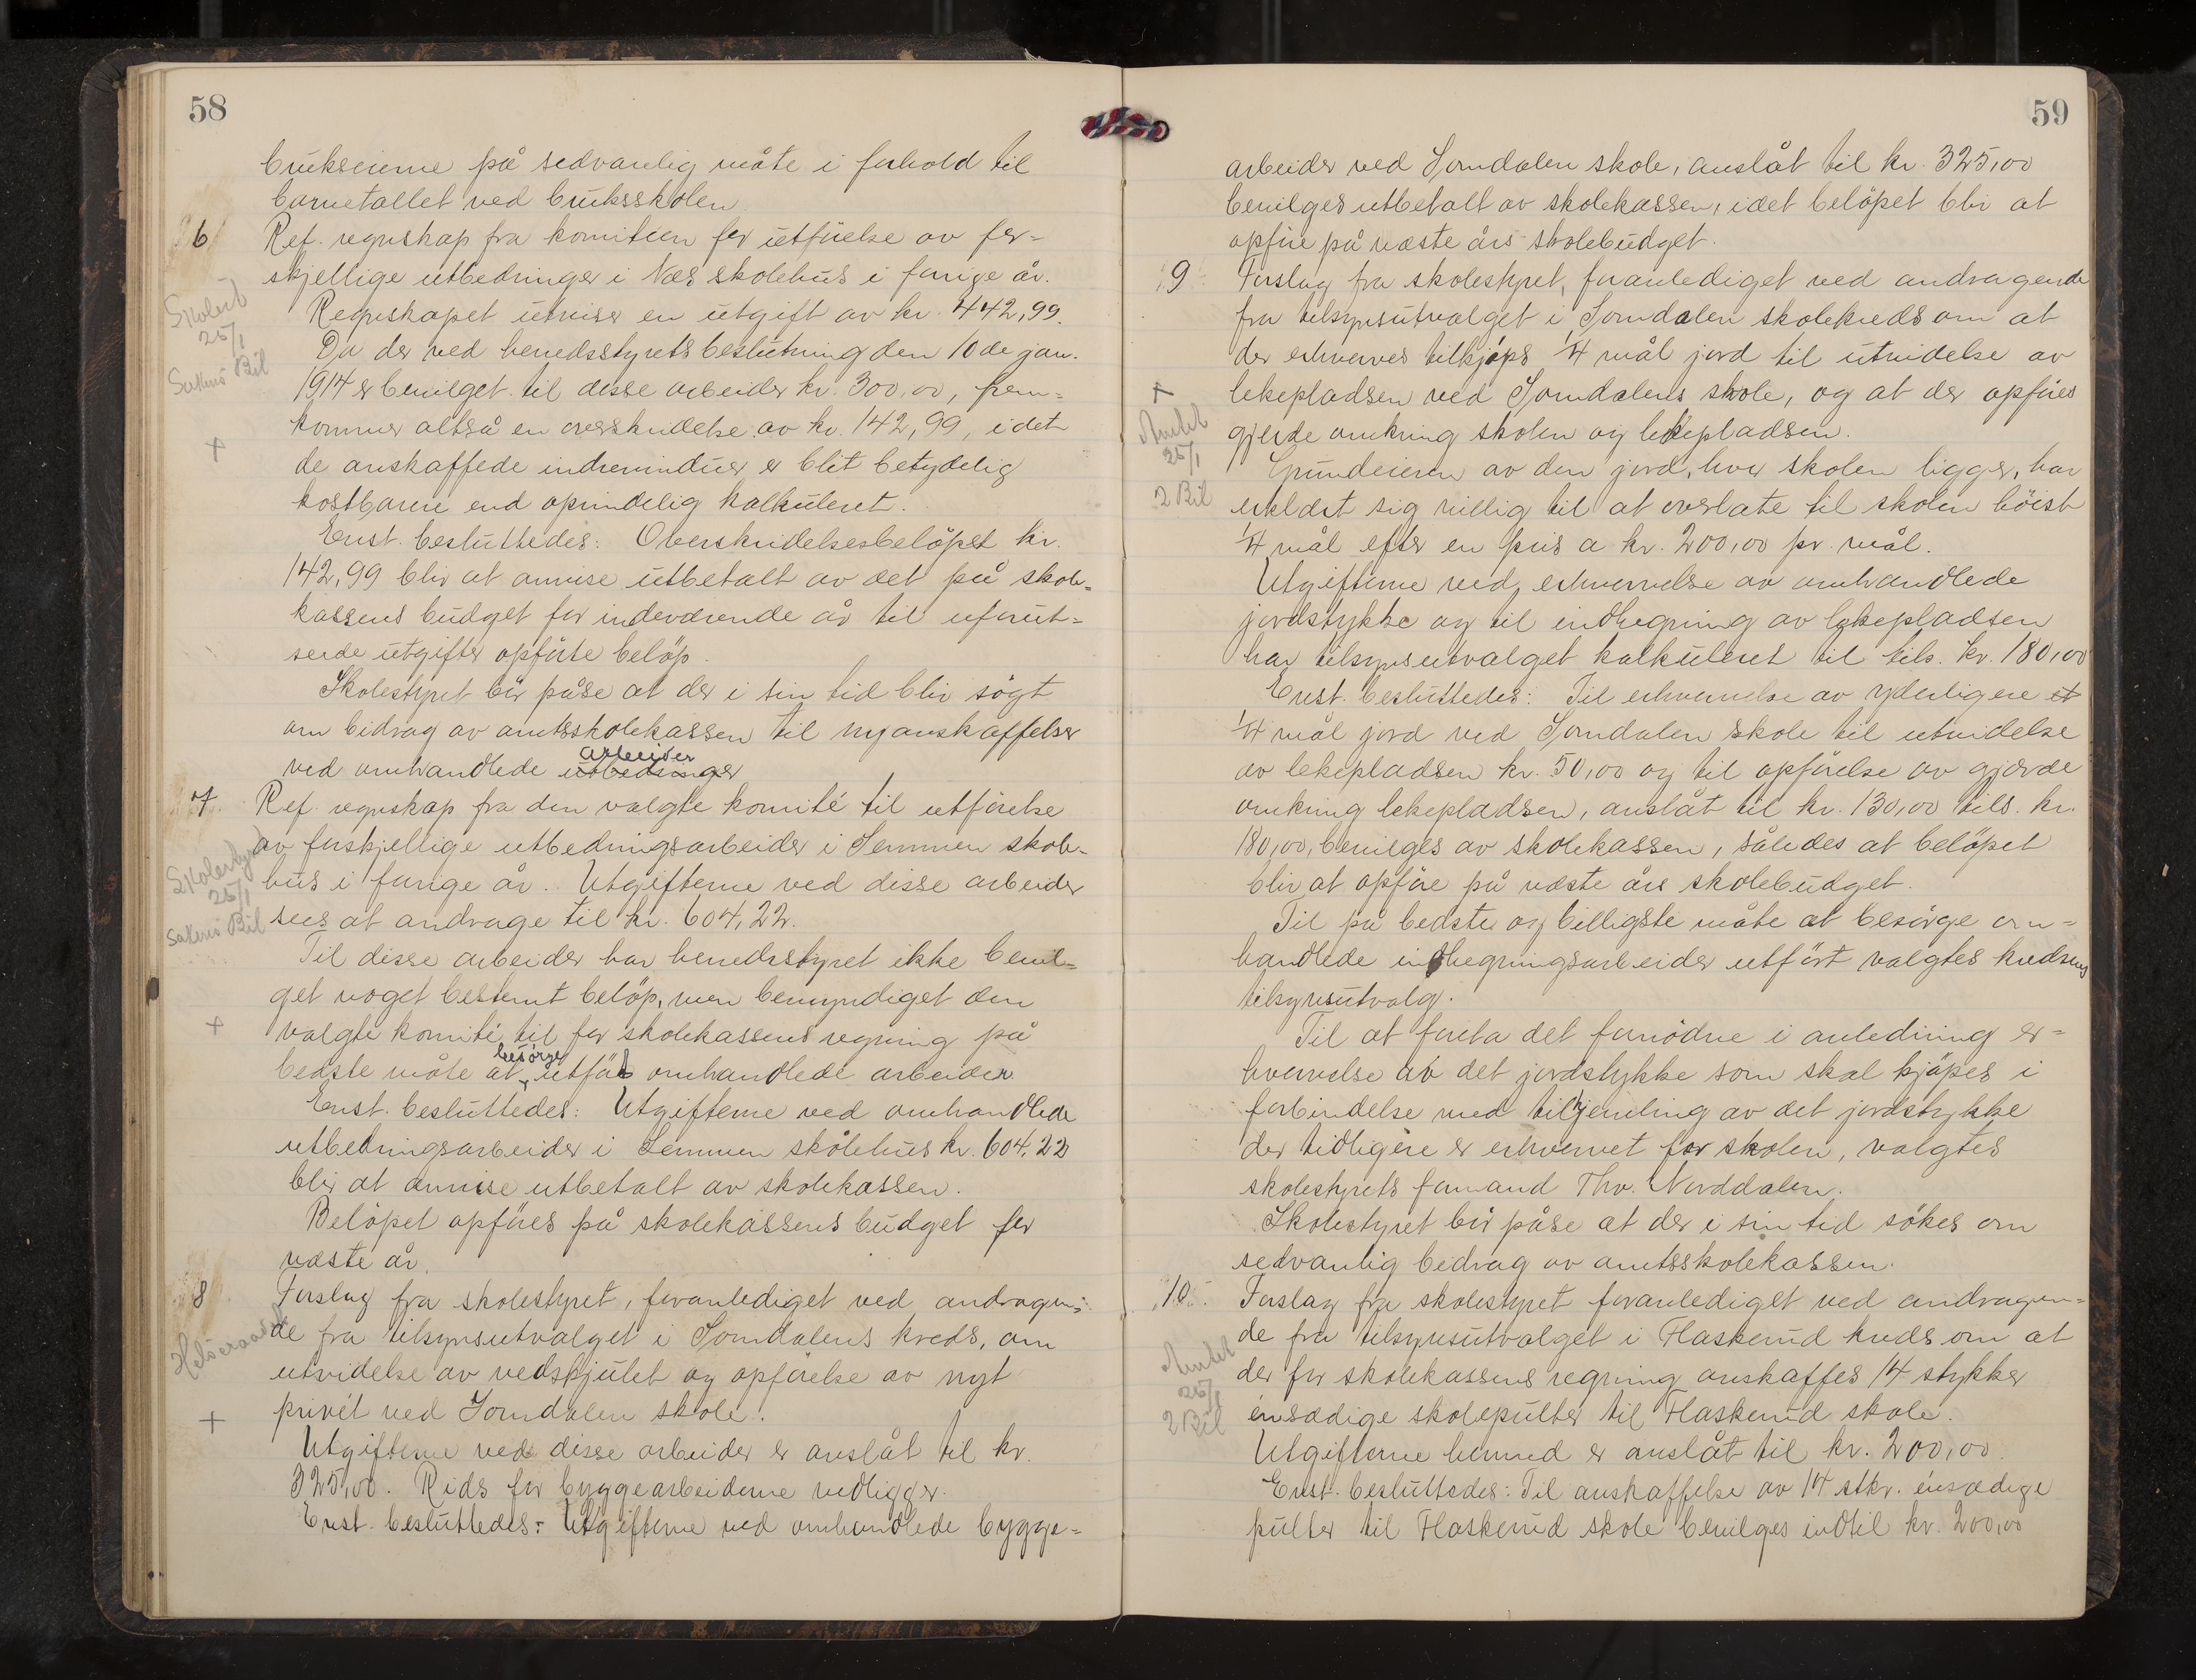 58
brukseierne på sedvanlig måte i forhold til
barnetallet ved bruksskolen
6
Ref. regnskap fra komiteen for utförelse av for-
skjellige utbedringer i Næs skolehus i forrige år.
Regnskapet utviser en utgift av kr. 442,99.
Da der ved herredsstyrets beslutning den 10de jan.
1914 er bevilget til disse arbeider kr. 300,00, frem-
kommer altså en overskridelse av kr. 142,99, idet
de anskaffede indrevinduer er blit betydelig
kostbarere end oprindelig kalkuleret.
Enst. besluttedes: Overskridelsesbelöpet kr.
142,99 blir at anvise utbetalt av det på skole-
kassens budget for indeværende år til uforut-
seede utgifter opförte belöp.
Skolestyret bör påse at der i sin tid blir sögt
om bidrag av amtsskolekassen til nyanskaffelser
arbeider
ved omhandlede utbedringer
7.
Ref. regnskap fra den valgte komité til utförelse
av forskjellige utbedringsarbeider i Semmen skole-
hus i forrige år. Utgifterne ved disse arbeider
sees at andrage til kr. 604,22.
Til disse arbeider har herredsstyret ikke bevil-
get noget bestemt belöp, men bemyndiget den
valgte komité til for skolekassens regning på
besörge
bedste måte at utfört omhandlede arbeider.
Enst. besluttedes: Utgifterne ved omhandlede
utbedringsarbeider i Semmen skolehus kr. 604,22
blir at anvise utbetalt av skolekassen.
Belöpet opföres på skolekassens budget for
næste år.
8
Forslag fra skolestyret, foranlediget ved andragen-
de fra tilsynsutvalget i Jorndalens kreds, om
utvidelse av vedskjulet og opförelse av nyt
privét ved Jorndalen skole.
Utgifterne ved disse arbeider er anslåt til kr.
325,00. Rids for byggearbeiderne vedligger.
Enst. besluttedes: Utgifterne ved omhandlede bygge-
Skolest
25/1
Sakens Bil
+
Skolestyret
25/1
Sakens Bil
+
Helseraadet
+
59
arbeider ved Jorndalen skole, anslåt til kr. 325,00
bevilges utbetalt av skolekassen, idet belöpet blir at
opföre på næste års skolebudget.
9
Forslag fra skolestyret, foranlediget ved andragende
fra tilsynsutvalget i Jorndalen skolekreds om at
der erhverves tilkjöps 1/4 mål jord til utvidelse av
lekepladsen ved Jorndalens skole, og at der opföres
gjerde omkring skolen og lekepladsen.
Grundeieren av den jord, hvor skolen ligger, har
erklært sig villig til at overlate til skolen höist
1/4 mål efter en pris a kr. 200,00 pr. mål.
Utgifterne ved erhvervelse av omhandlede
jordstykke og til indhegning av lekepladsen
har tilsynsutvalget kalkuleret til tils. kr. 180,00
Enst. besluttedes: Til erhvervelse av yderligere et
1/4 mål jord ved Jorndalen skole til utvidelse
av lekepladsen kr. 50,00 og til opförelse av gjærde
omkring lekepladsen, anslåt til kr. 130,00 tils. kr.
180,00, bevilges av skolekassen, således at belöpet
blir at opföre på næste års skolebudget.
Til på bedste og billigste måte at besörge om-
handlede indhegningsarbeider utfört valgtes kredsens
tilsynsutvalg.
Til at foreta det fornödne i anledning er-
hvervelse av det jordstykke som skal kjöpes i
forbindelse med tilhjemling av det jordstykke
der tidligere er erhvervet for skolen, valgtes
skolestyrets formand Thv. Norddalen.
Skolestyret bör påse at der i sin tid sökes om
sedvanlig bidrag av amtsskolekassen.
10.
Forslag fra skolestyret foranlediget ved andragen-
de fra tilsynsutvalget i Flaskerud kreds om at
der for skolekassens regning anskaffes 14 stykker
énsædige skolepulter til Flaskerud skole.
Utgifterne hermed er anslåt til kr. 200,00.
Enst. besluttedes: Til anskaffelse av 14 stkr. énsædige
pulter til Flaskerud skole bevilges indtil kr. 200,00
+
Amtet
25/1
2 Bil
Amtet
25/1
2 Bil